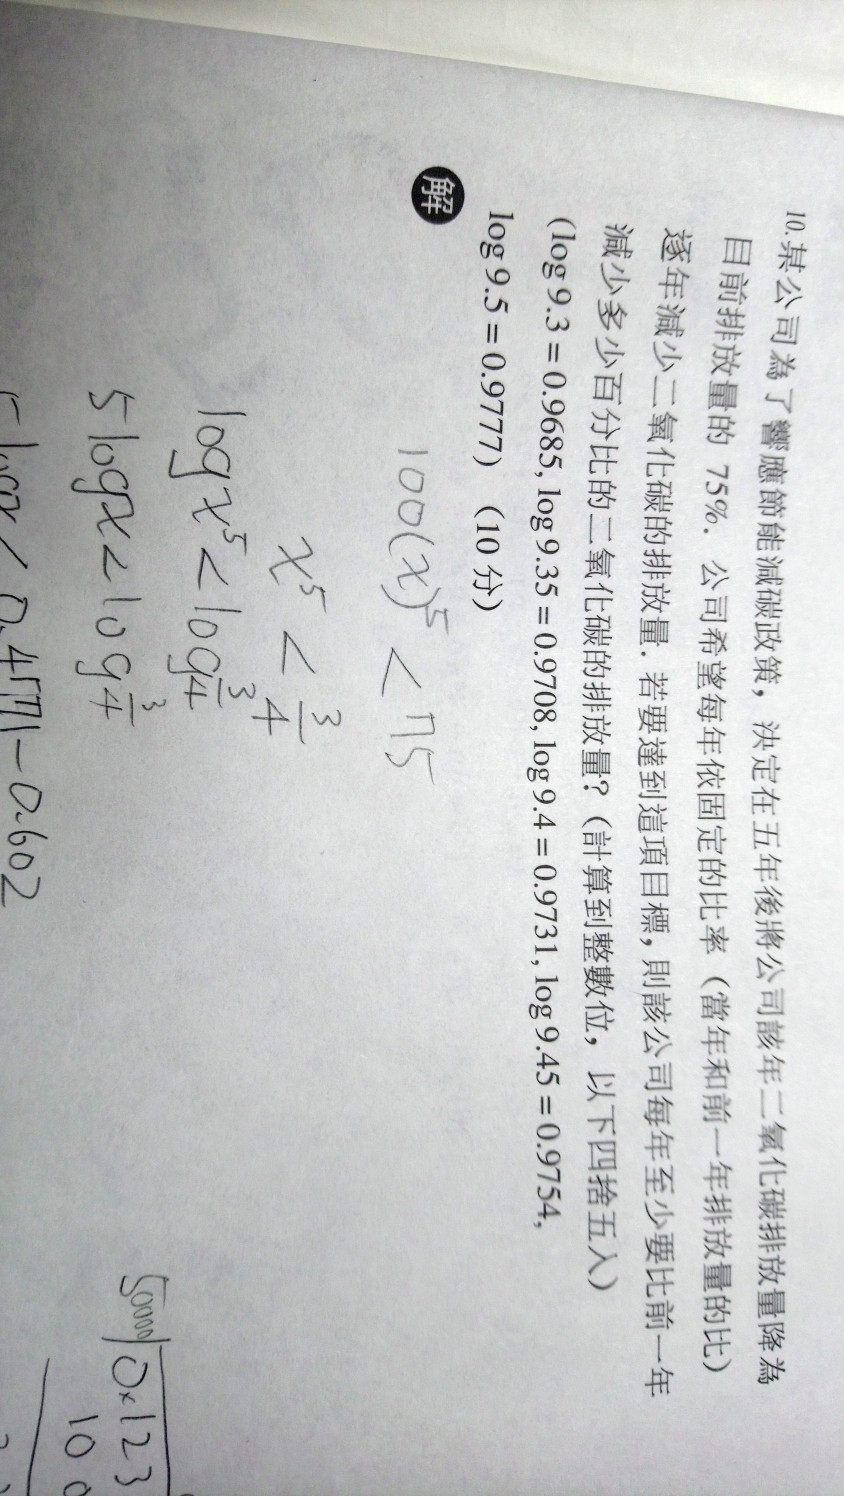 10. 某公司為了響應節能減碳政策，決定在五年後將公司該年二氧化碳排放量降為
目前排放量的 75%．公司希望每年依固定的比率（當年和前一年排放量的比）
逐年減少二氧化碳的排放量．若要達到這項目標，則該公司每年至少要比前一年
減少多少百分比的二氧化碳的排放量？（計算到整數位，以下四捨五入）
(log 9.3 = 0.9685, log 9.35 = 0.9708, log 9.4 = 0.9731, log 9.45 = 0.9754,
log 9.5 = 0.9777)（10 分）
解
100(x)⁵ < 75
x⁵ < 3/4
log x⁵ < log 3/4
5 log x < log 3/4
5 log x < 0.4771 - 0.602
50000
0.123
10